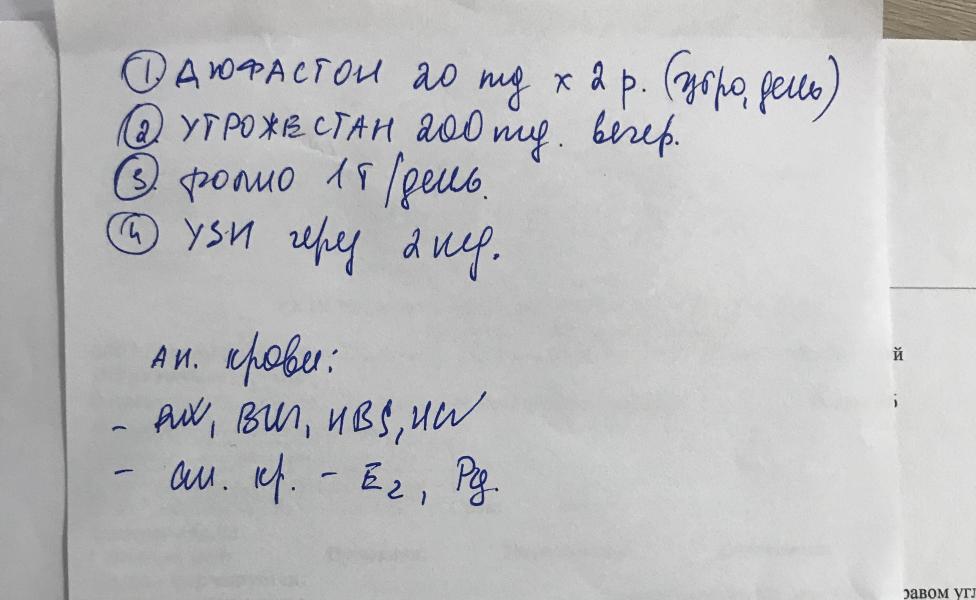 ① ДЮФАСТОН 20 mg x 2 р. (утро, день)
② УТРОЖЕСТАН 200 mg. вечер.
③ фолио 1 т/день.
④ УЗИ через 2 нед.
й
Ан. крови:
- RW, ВИЧ, HBS, HCV
- ан. кр. - E2, Pg.
равом угл